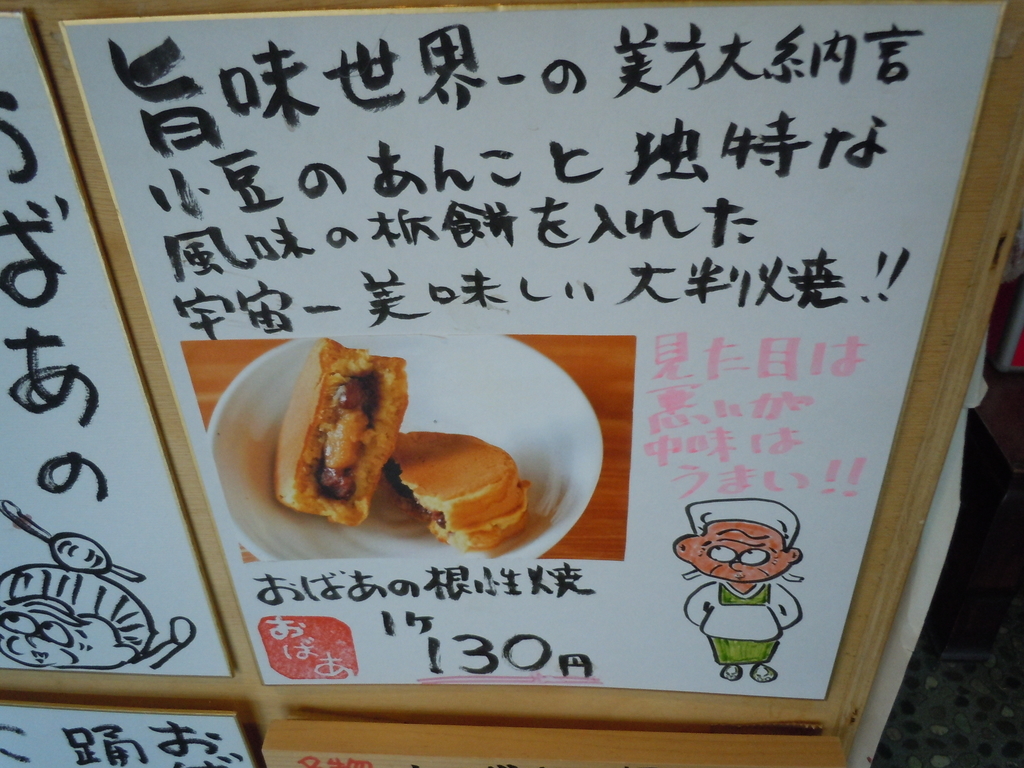 旨味世界一の美方大納言
小豆のあんこと独特な
風味の栃餅を入れた
宇宙一美味しい大判焼!!
見た目は
悪いが
中味は
うまい!!
おばあの根性焼
おばあ
1ケ
130円
おばあの
踊
おば
名物